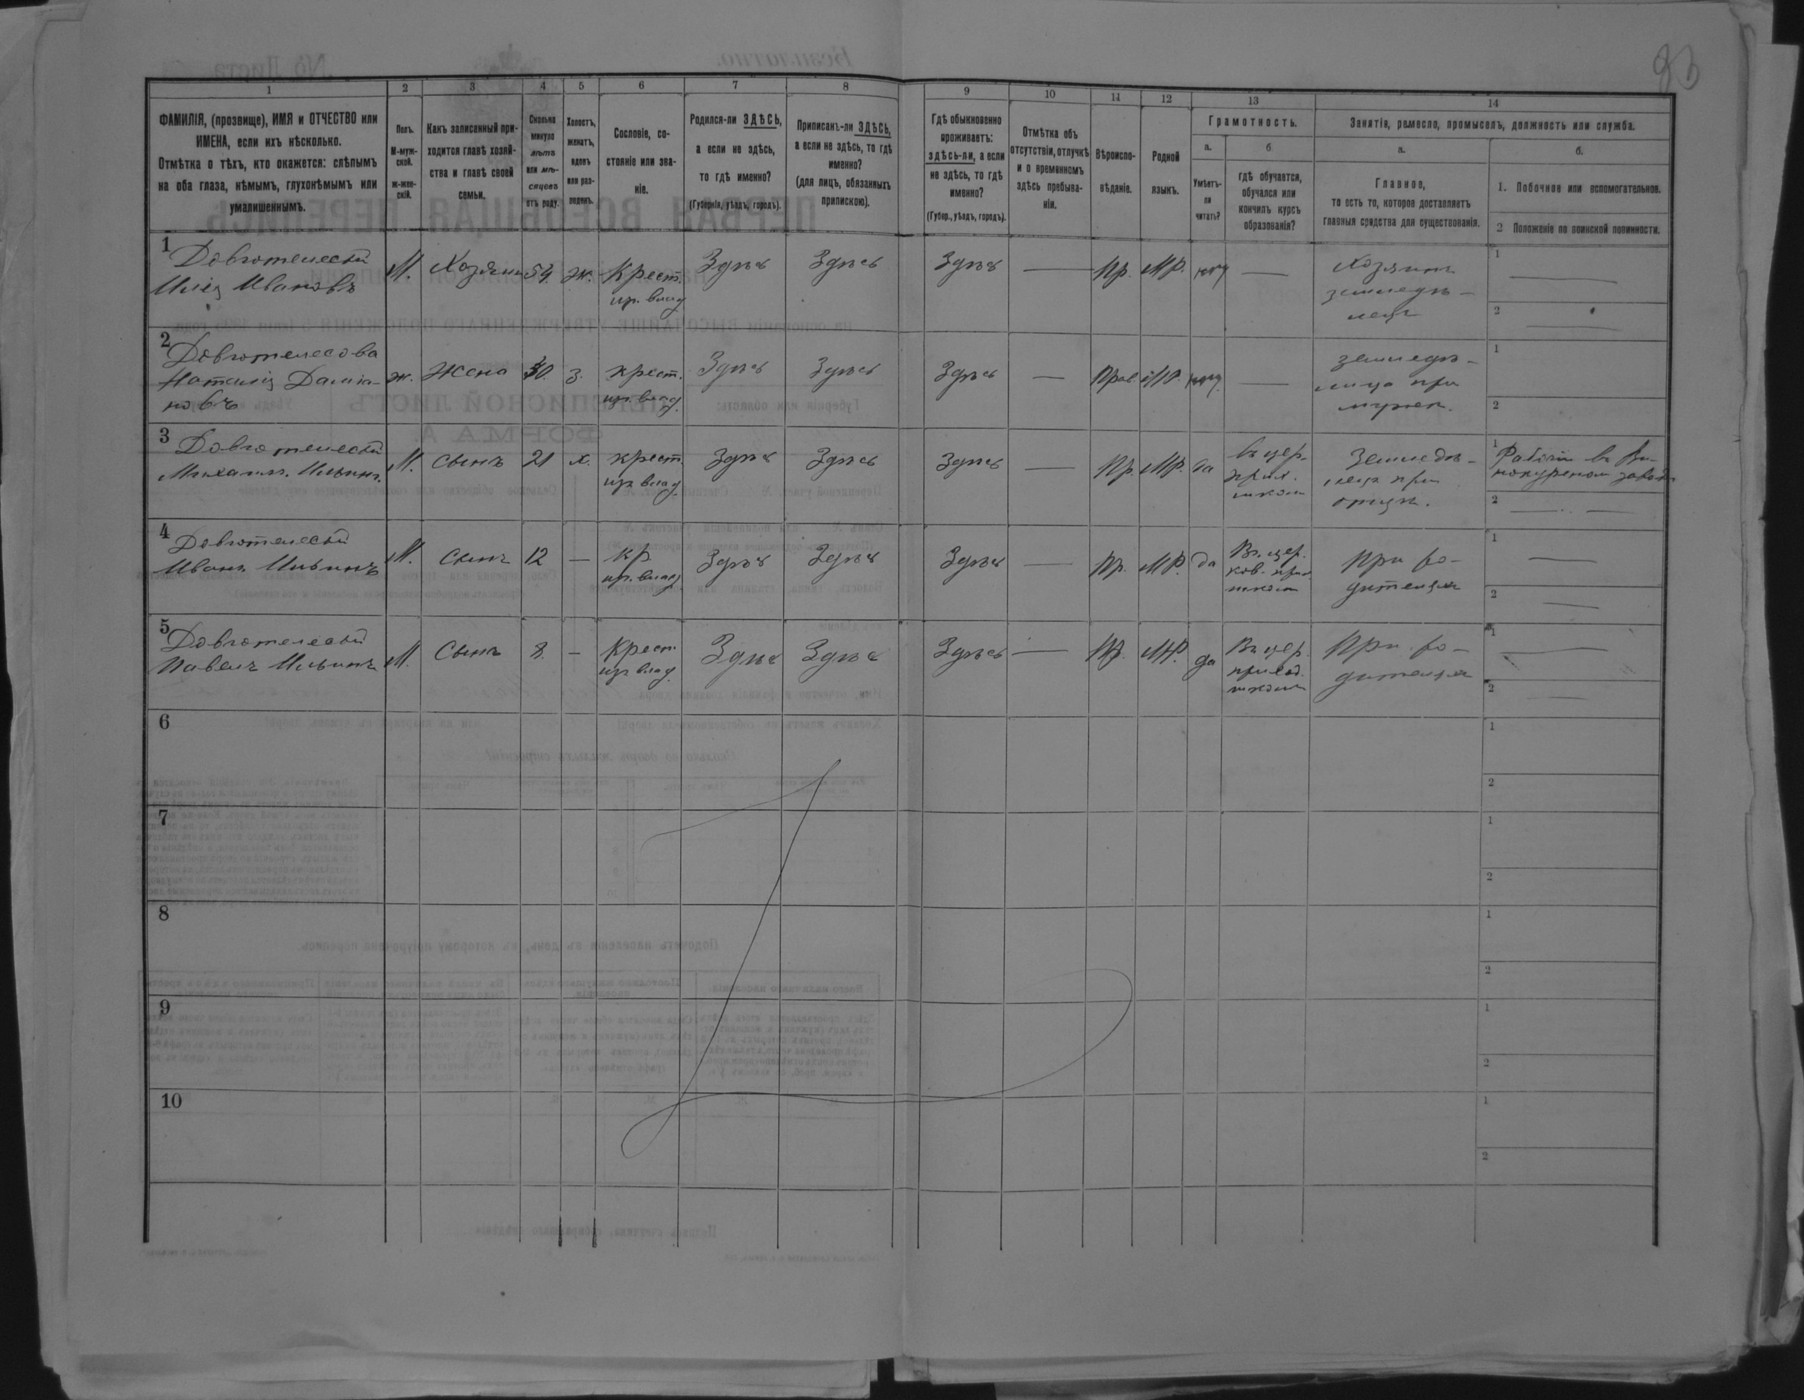 83
1 2 3 4 5 6 7 8 9 10 11 12 13 14
ФАМИЛІЯ, (прозвище), ИМЯ и ОТЧЕСТВО или
ИМЕНА, если ихъ нѣсколько.
Отмѣтка о тѣхъ, кто окажется: слѣпымъ
на оба глаза, нѣмымъ, глухонѣмымъ или
умалишеннымъ.
Полъ.
М-муж-
ской.
ж-жен-
скій.
Какъ записанный при-
ходится главѣ хозяй-
ства и главѣ своей
семьи.
Сколько
минуло
лѣтъ
или мѣ-
сяцевъ
отъ роду.
Холостъ,
женатъ,
вдовъ
или раз-
веденъ.
Сословіе, со-
стояніе или зва-
ніе.
Родился-ли ЗДѢСЬ,
а если не здѣсь,
то гдѣ именно?
(Губернія, уѣздъ, городъ).
Приписанъ-ли ЗДѢСЬ,
а если не здѣсь, то гдѣ
именно?
(для лицъ, обязанныхъ
припискою).
Гдѣ обыкновенно
проживаетъ:
здѣсь-ли, а если
не здѣсь, то гдѣ
именно?
(Губер., уѣздъ, городъ).
Отмѣтка объ
отсутствіи, отлучкѣ
и о временномъ
здѣсь пребыва-
ніи.
Вѣроиспо-
вѣданіе.
Родной
языкъ.
Грамотность.
а.
Умѣетъ-
ли
читать?
б
гдѣ обучается,
обучался или
кончилъ курсъ
образованія?
Занятіе, ремесло, промыселъ, должность или служба.
а.
Главное,
то есть то, которое доставляетъ
главныя средства для существованія.
б.
1. Побочное или вспомогательное.
2 Положеніе по воинской повинности.
1
Довготелесый
Илія Ивановъ
М.
Хозяинъ
54.
Ж.
Крест.
из. влад
Здѣсь
Здѣсь
Здѣсь
Пр.
МР.
нѣт
Хозяинъ
земледѣ-
лец
1
2
2
Довготелесова
Наталія Даміа-
новъ
ж.
Жена
з.
крест.
из. влад.
Здѣсь
Здѣсь
Здѣсь
Прав
МР.
нѣт.
земледѣ-
лица при
мужѣ.
1
2
3
Довготелесый
Михаилъ Ильинъ.
М.
сынъ
21
х.
крест.
из влад.
Здѣсь
Здѣсь
Здѣсь
Пр.
МР.
да
въ цер.
прих.
школѣ
Земледѣ-
лец при
отцѣ.
1
Рабочій въ Ви-
нокуреномъ заводѣ
2
4
Довготелесый
Иванъ Ильинъ
М.
сынъ
12
кр
из. влад
Здѣсь
Здѣсь
Здѣсь
Пр.
МР.
да
Въ цер.
ков. прих
школѣ
При ро-
дителях
1
2
5
Довготелесый
Павелъ Ильинъ
М.
Сынъ
8.
Крест
из влад.
Здѣсь
Здѣсь
Здѣсь
Пр.
МР.
да
Въ цер.
приход.
школѣ
При ро-
дителях
1
2
6
1
2
7
1
2
8
1
2
9
1
2
10
1
2